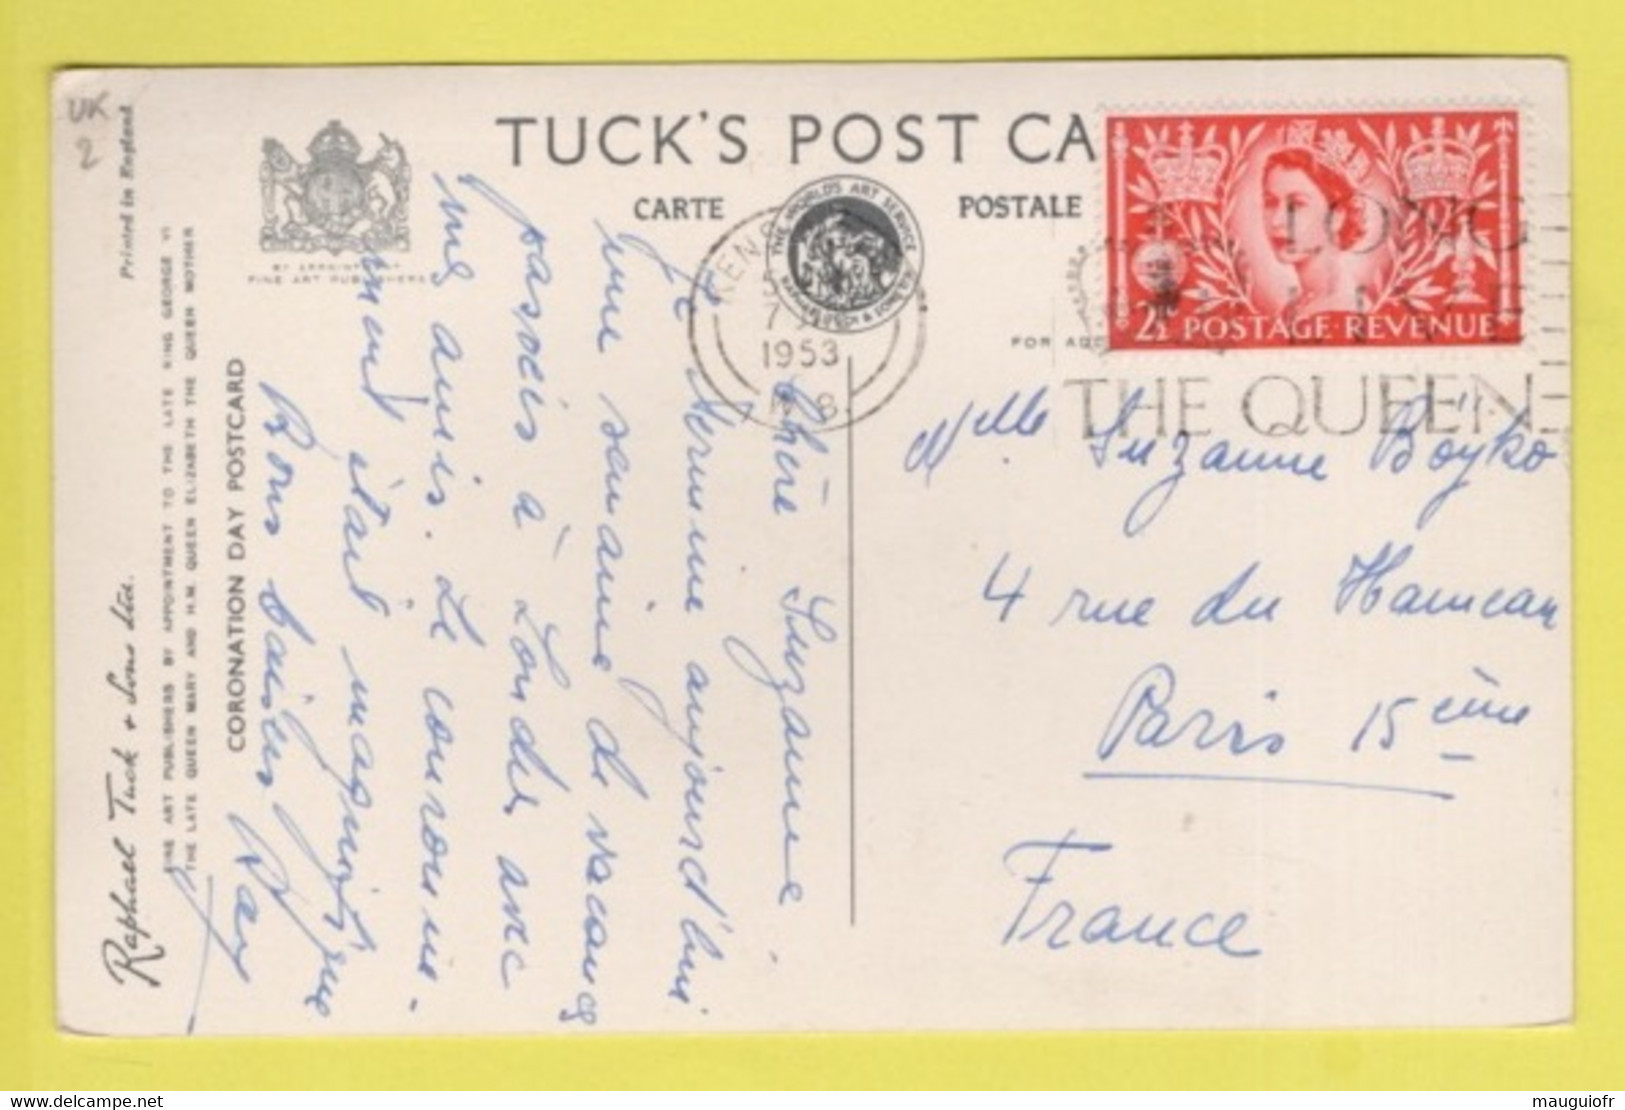 UK
2
Printed in England
BY APPOINTMENT
FINE ART PUBLISHERS
TUCK'S POST CA
CARTE
POSTALE
THE WORLD'S ART SERVICE
RAPHAEL TUCK & SONS LTD
FOR ADD
7
1953
W. 8.
2½ POSTAGE REVENUE
LONG
LIVE
THE QUEEN
Raphael Tuck & Sons Ltd.
FINE ART PUBLISHERS BY APPOINTMENT TO THE LATE KING GEORGE VI
THE LATE QUEEN MARY AND H.M. QUEEN ELIZABETH THE QUEEN MOTHER
CORONATION DAY POSTCARD
Chère Suzanne.
Je termine aujourd'hui
une semaine de vacances
passeis à Londres avec
mes amis. Le couronne-
ment était magnifique
Bons baisers
Mlle Suzanne Boÿko
4 rue du Hameau
Paris 15 ème
France
Delcampe.net
mauguiofr